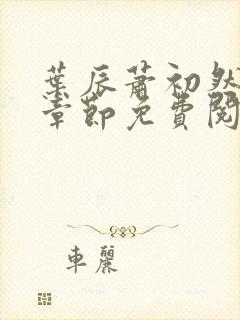 葉辰蕭初然
章節免費閱
車麗